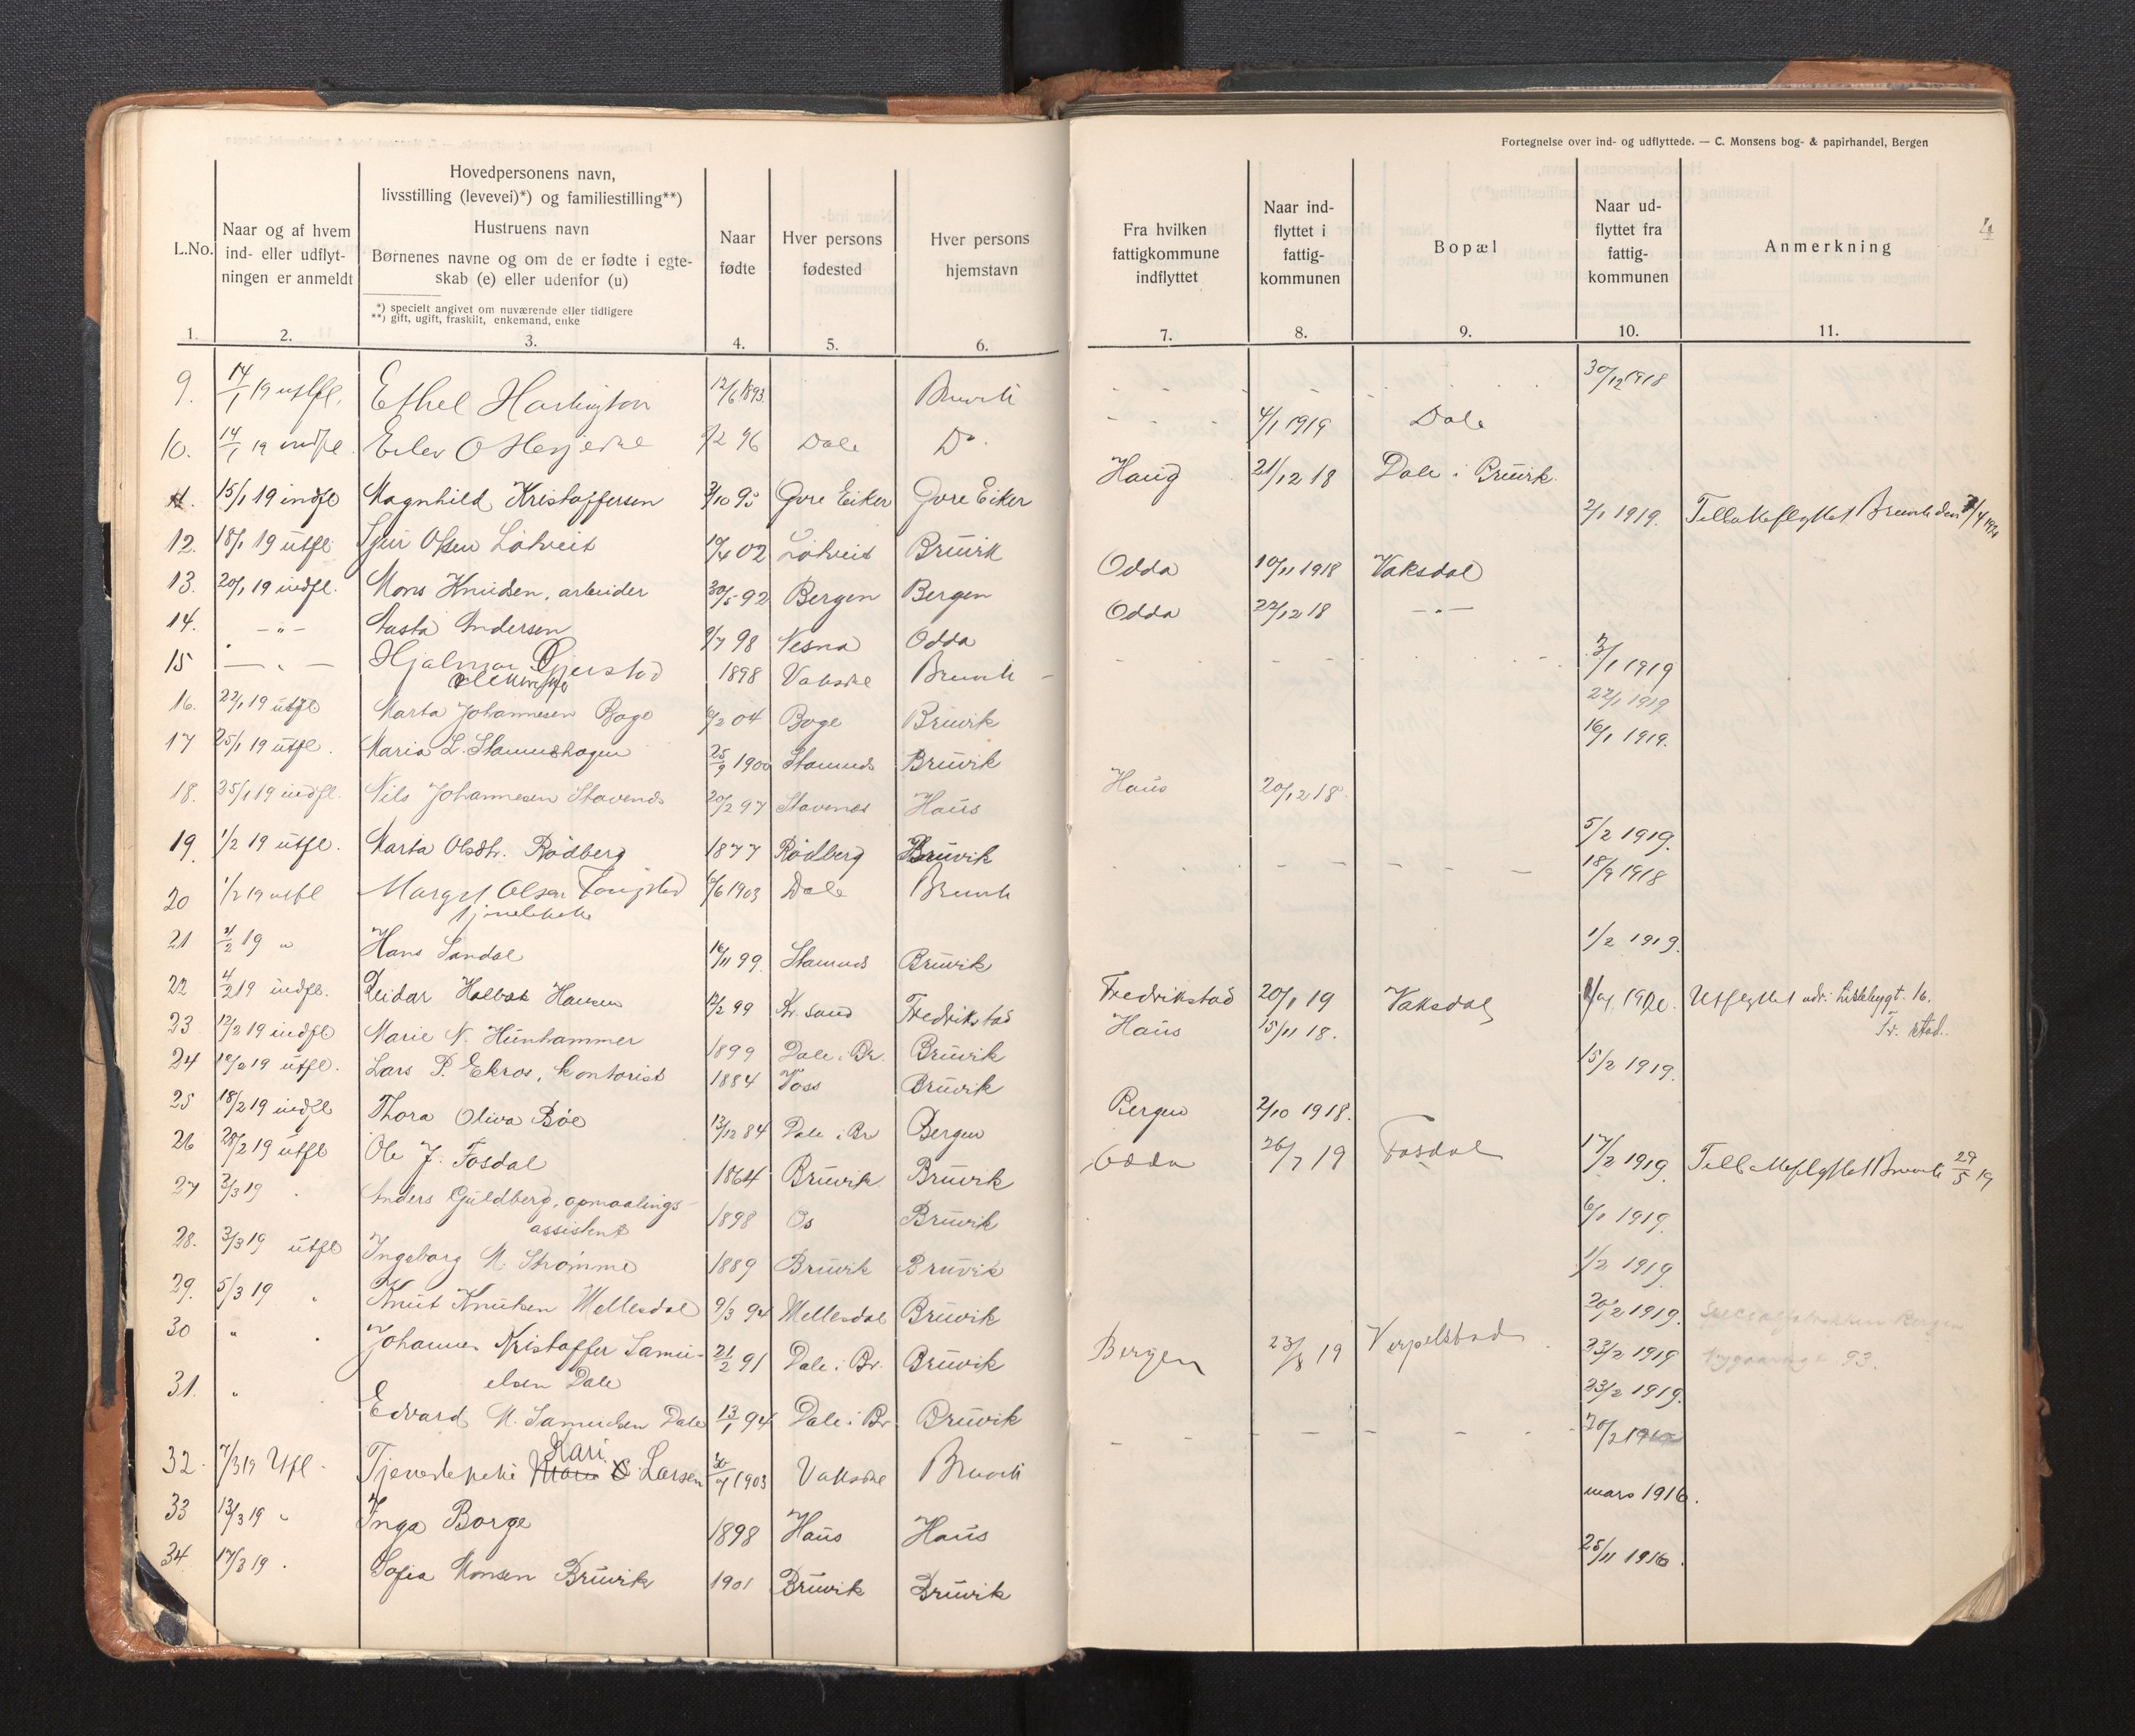 Fortegnelse over ind- og udflyttede. — C. Monsens bog- & papirhandel, Bergen
4
L.No.
Naar og af hvem
ind- eller udflyt-
ningen er anmeldt
Hovedpersonens navn,
livsstilling (levevei)*) og familiestilling**)
Hustruens navn
Børnenes navne og om de er fødte i egte-
skab (e) eller udenfor (u)
*) specielt angivet om nuværende eller tidligere
**) gift, ugift, fraskilt, enkemand, enke
Naar
fødte
Hver persons
fødested
Hver persons
hjemstavn
Fra hvilken
fattigkommune
indflyttet
Naar ind-
flyttet i
fattig-
kommunen
Bopæl
Naar ud-
flyttet fra
fattig-
kommunen
Anmerkning
1. 2. 3. 4. 5. 6. 7. 8. 9. 10. 11.
9. 14/1 19 utfl. Ethel Hartington 12/6 1893. Bruvik 30/12 1918
10. 14/1 19 indfl. 96 Dale Do. 4/1 1919 Dale
11. 15/1 19 indfl Magnhild Kristoffersen 3/10 95 Øvre Eiker Øvre Eiker Haug 21/12 18 Dale i Bruvik.
12. 18/1 19 utfl. Sjur Olsen Løtveit 02 Løtveit Bruvik 2/1 1919. Tilbakeflyttet Bruvik den
13. 20/1 19 indfl. Mons Knudsen, arbeider 30/5 92 Bergen Bergen Odda 10/11 1918 Vaksdal
14. —"— Aasta Andersen 9/7 98 Nesna Odda Odda 22/12 18 —"—
15 —"— Hjalmar Gjerstad 1898 Vaksdal Bruvik 3/1 1919
16. 22/1 19 utfl Marta Johannesen Boge 6/2 04 Boge Bruvik 22/1 1919
17 25/1 19 utfl. Maria L. Stamneshagen 25/9 1900 Stamnes Bruvik 16/1 1919.
18. 25/1 19 indfl. Nils Johannesen Stavenes 20/2 97 Stavenes Haus Haus 20/12 18
19. 1/2 19 utfl. Marta Olsdtr. Rødberg 1877 Rødberg Bruvik 5/2 1919.
20 1/2 19 utfl Margit Olsen 6/6 1903 Dale Bruvik 18/9 1918
21 4/2 19 " Hans Sandal 16/11 99. Stamnes Bruvik 1/2 1919.
22 4/2 19 indfl. Reidar Holbæk Hansen 12/2 99 Kr. sand Fredrikstad Fredrikstad 20/1 19 Vaksdal 1920. Utflyttet adr.: 16.
Fr. stad.
23 12/2 19 indfl Marie N. Hunhammer 1899 Dale i Br. Bruvik Haus 15/11 18.
24 19 utfl. Lars P. Ekroe, kontorist 1884 Voss Bruvik 15/2 1919.
25 18/2 19 indfl Thora Oliva Bøe 13/12 84 Dale i Br Bergen Bergen 2/10 1918.
26 28/2 19 utfl Ole J. Fosdal 1864 Bruvik Bruvik Odda 26/7 19 Fosdal 17/2 1919. Tilbakeflyttet Bruvik 29/5 19
27 3/3 19 Anders Guldberg, opmaalings-
assistent 1898 Os Bruvik 6/1 1919.
28. 3/3 19 utfl Ingeborg M. Strømme 1889 Bruvik Bruvik 1/2 1919.
29. 5/3 19 " Knut Knutsen Mellesdal 9/3 94 Mellesdal Bruvik 20/2 1919.
30 " Johannes Kristoffer Samu-
elsen Dale 21/2 91 Dale i Br. Bruvik Bergen 23/8 19 23/2 1919 93.
31. " Edvard M. Samuelsen Dale 13/1 94 Dale i Br. Bruvik 23/2 1919.
32. 7/3 19 Utfl. Tjenestepike Kari Larsen 1903 Vaksdal Bruvik
33 13/3 19 " Inga Borge 1898 Haus Haus mars 1916.
34 17/3 19 Sofia Monsen Bruvik 1901 Bruvik Bruvik 25/11 1916.